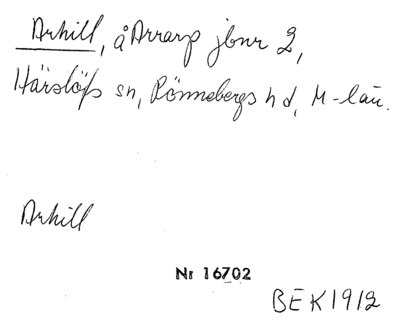 Arhill, å Arrarp jbnr 2,
Härslöfs sn, Rönnebergs hd, M-län.
Arhill
Nr 16702
BEK1912